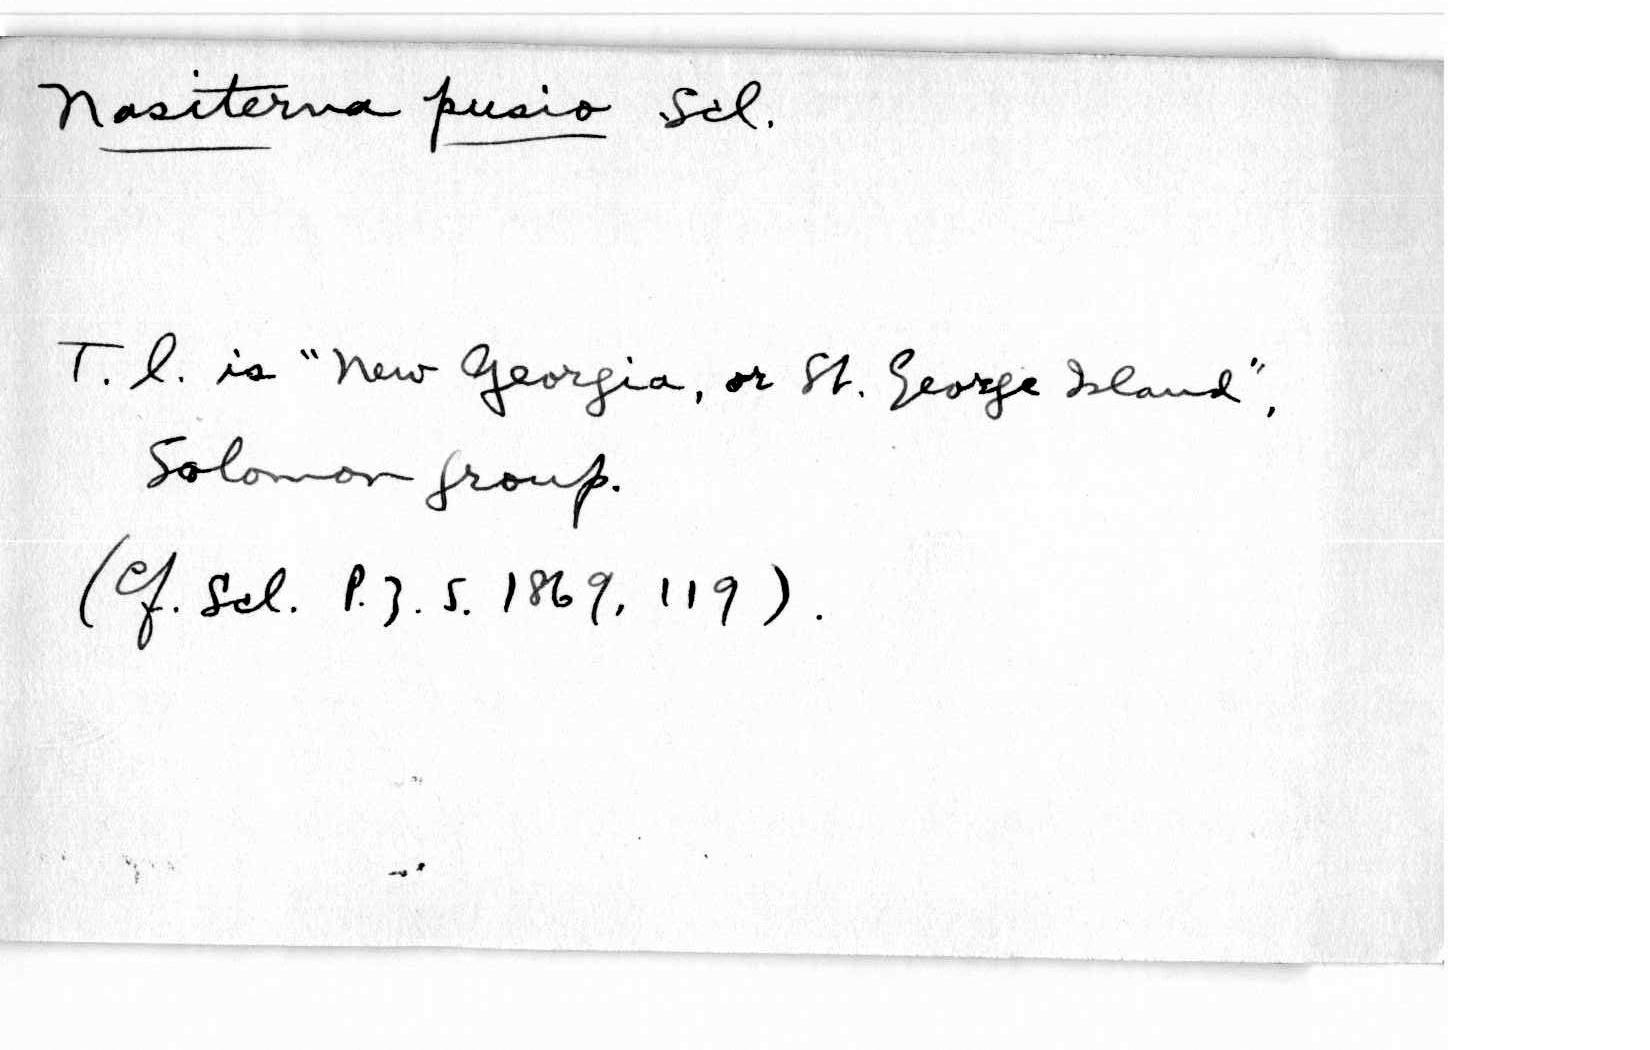 Nasiterna pusio Scl.
T. l. is "New Georgia, or St. George Island",
Solomon group.
(Cf. Scl. P.Z.S. 1869, 119).